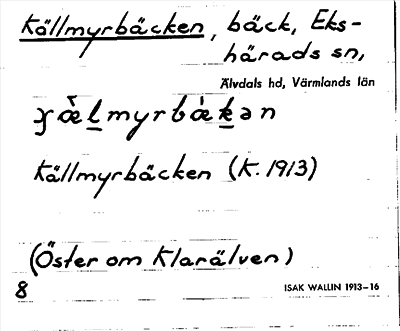 Källmyrbäcken, bäck, Eks-
härads sn,
Älvdals hd, Värmlands län
Källmyrbäcken (K. 1913)
(Öster om Klarälven)
8
ISAK WALLIN 1913–16